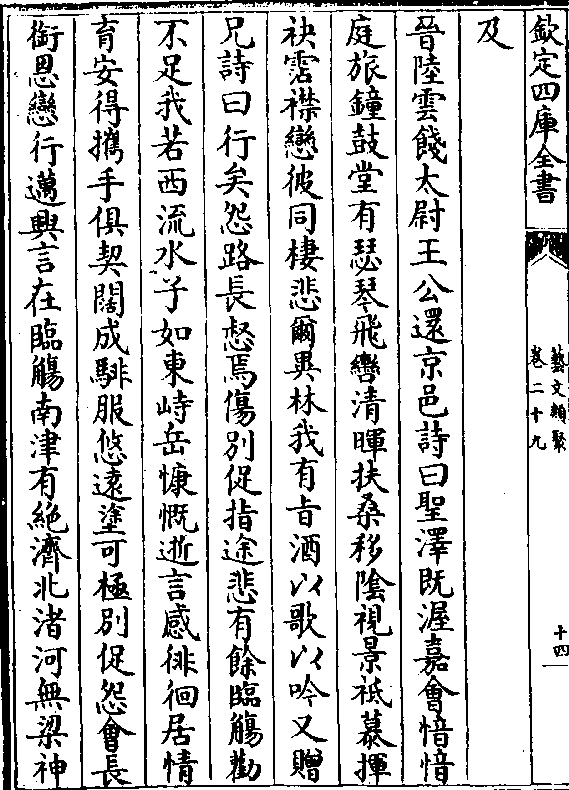 欽定四庫全書
藝文類聚
卷二十九
十四
及
晉陸雲餞太尉王公還京邑詩曰聖澤既渥嘉會愔愔
庭旅鐘鼓堂有瑟琴飛轡清暉扶桑移陰視景祗慕揮
袂霑襟戀彼同棲悲爾異林我有旨酒以歌以吟又贈
兄詩曰行矣怨路長惄焉傷別促指途悲有餘臨觴勸
不足我若西流水子如東峙岳慷慨逝言感徘徊居情
育安得攜手俱契闊成騑服悠遠塗可極別促怨會長
銜恩戀行邁興言在臨觴南津有絶濟北渚河無梁神